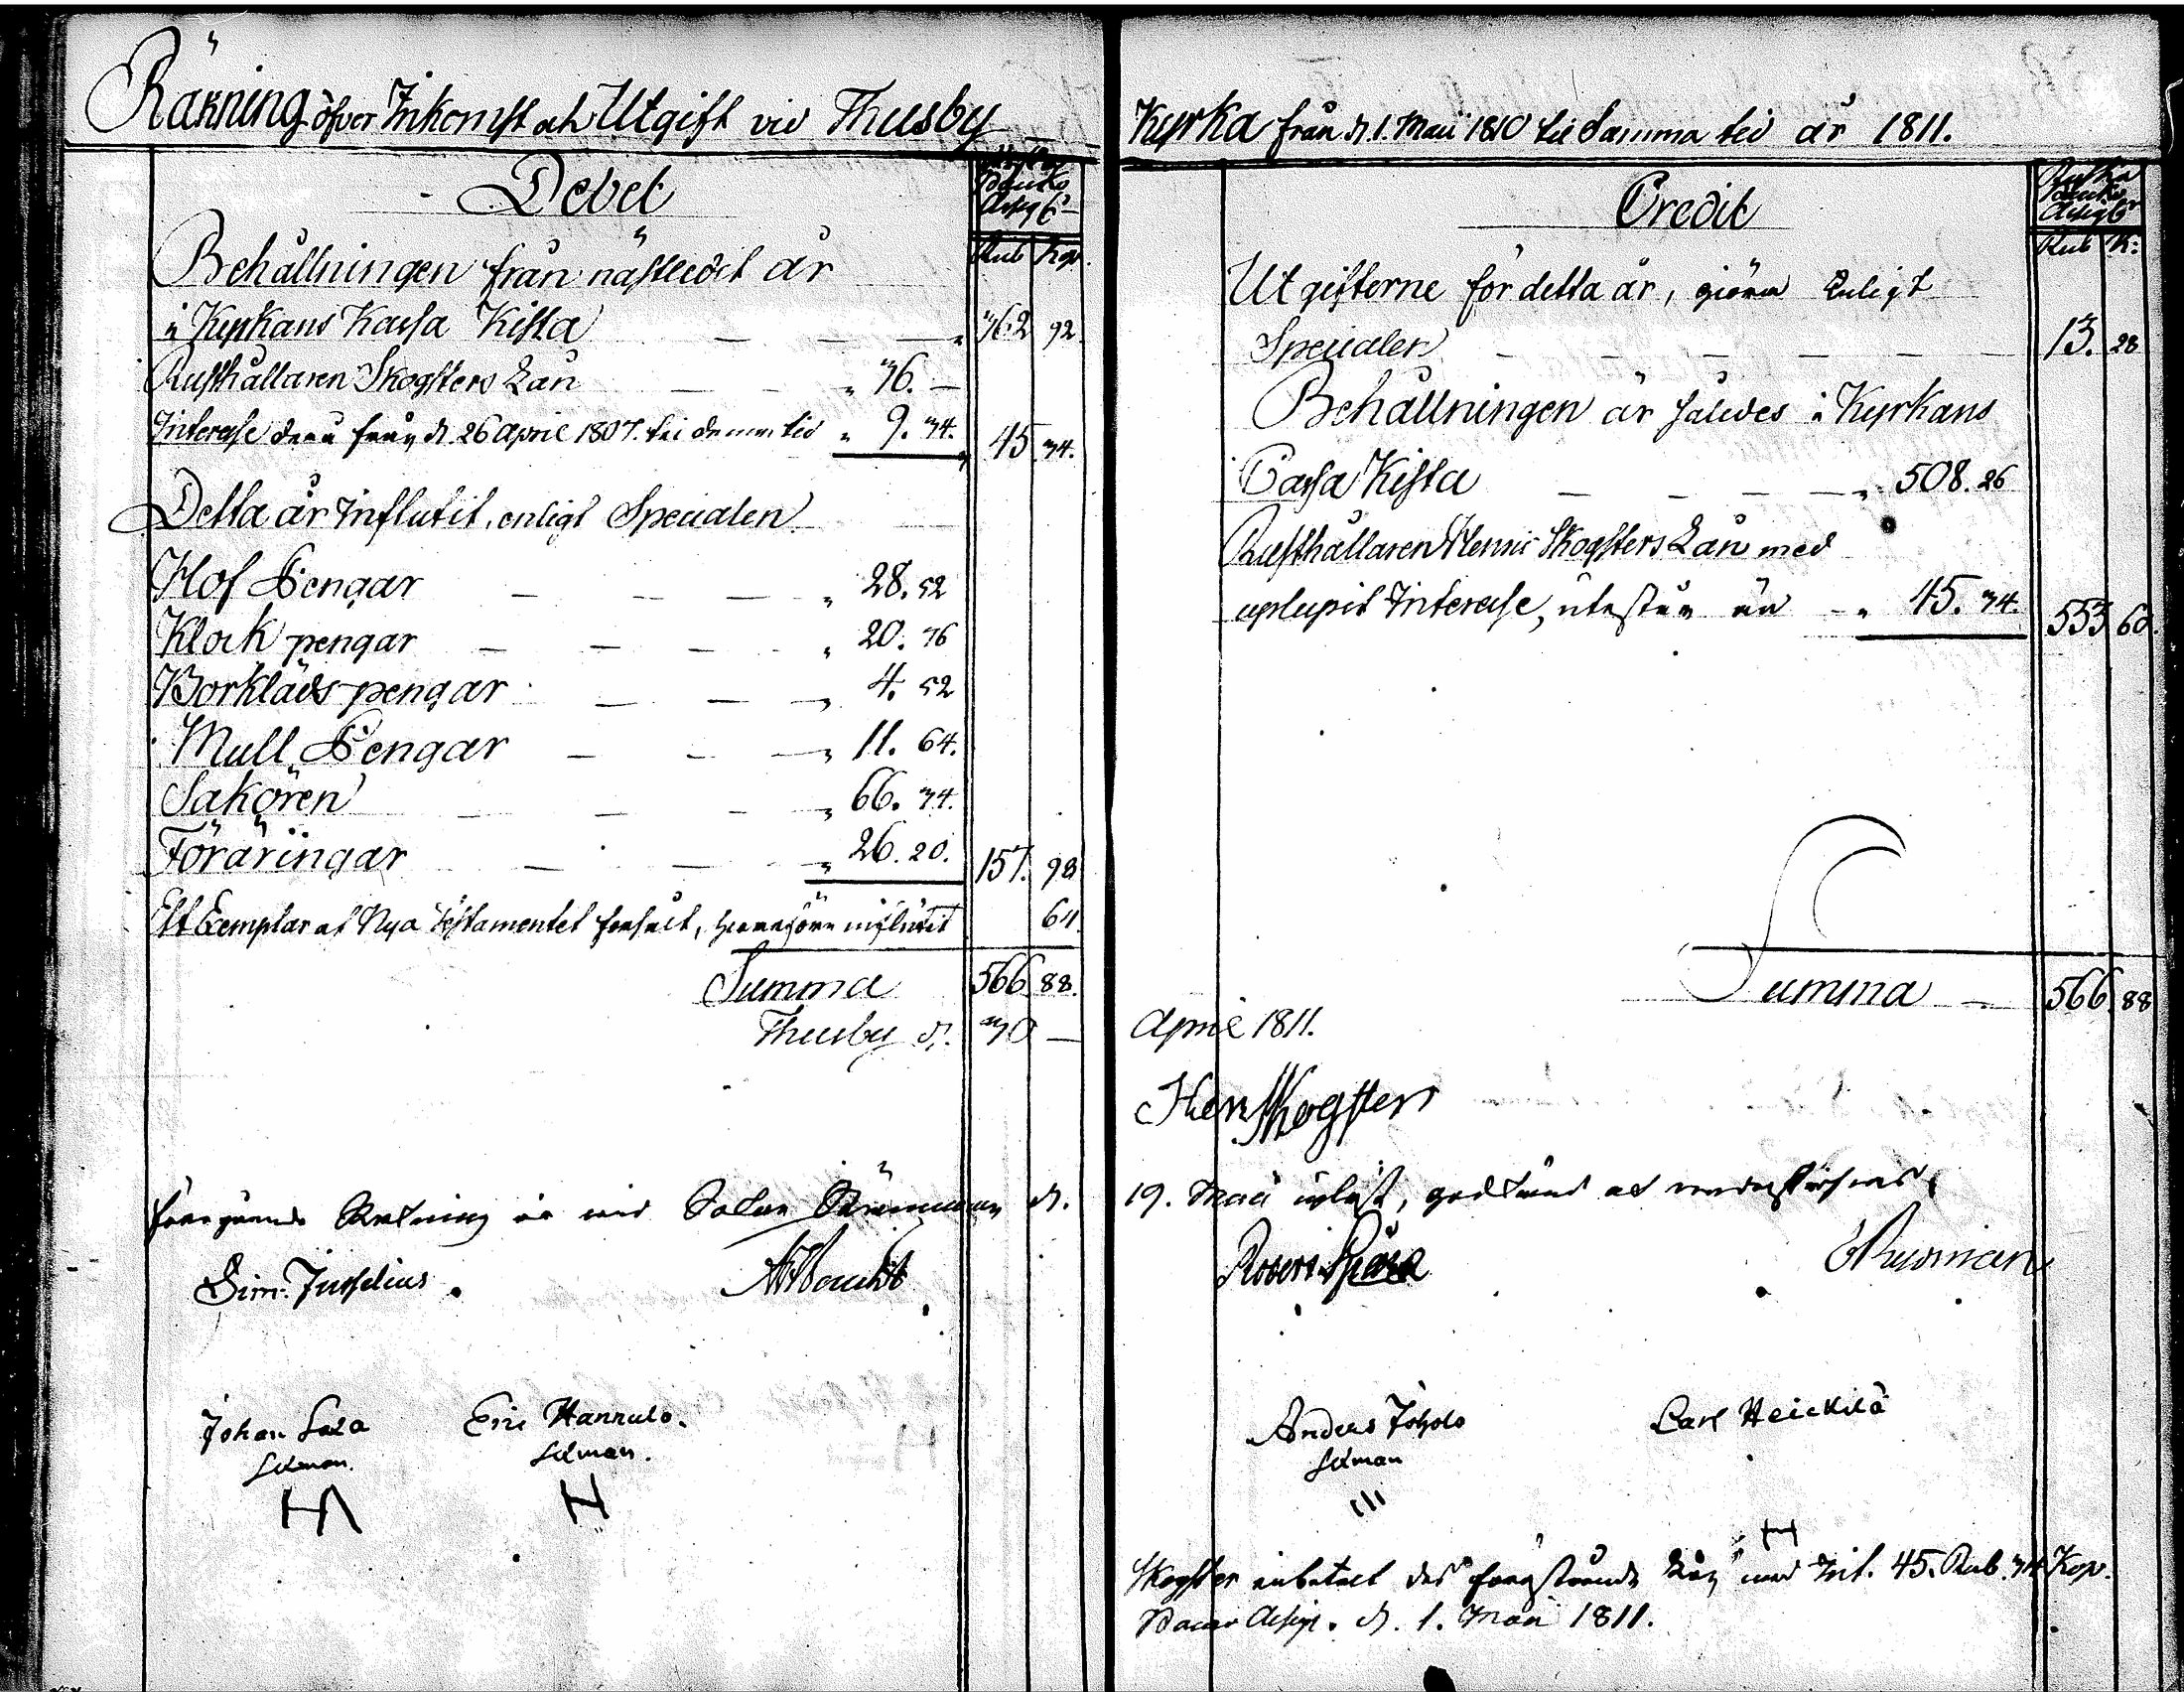 Räkning öfver Inkomst och Utgift vid Thusby Kyrka från d. 1. Maii 1810 til Samma tid år 1811.
Debet
Banko
Assig:
Rub Kop.
Behållningen från nästledit år
i Kyrkans Kassa Kista „ 362 92.
Rusthållaren Skogsters Lån „ 36. —
Interesse derå från d. 26 April 1807. til denna tid „ 9. 34. 45. 34.
Detta år Influtit, enligt Specialen
Hof Pengar „ 28. 52
Klock pengar „ 20. 76
Borkläds pengar „ 4. 52
Mull Pengar „ 11. 64.
Sakören „ 66. 34.
Föräringar „ 26. 20. 157. 98
Ett Exemplar af Nya Testamentet försålt, influtit 64.
Summa 566. 88.
Thusby d. 30 — April 1811.
Credit
Ruska
Banko
Assig:
Rub K:
Utgifterne för detta år, giöra Enligt
Specialen 13. 28
Behållningen är således i Kyrkans
Cassa Kista „ 508. 26
Rusthållaren Henric Skogsters Lån med
uplupit Interesse, utestår än „ 45. 34. 553 60.
Summa 566. 88
Hen: Skogster
Föregående Räkning är vid Sokne Stämman d. 19. Maii upläst, godkänd
Sim: Jusselius.
Johan Sala
Sexman.
Eric Hannula.
Sexman.
H
Anders
Sexman
III
Carl Heickilä
H
Skogster inbetalt det föregående Lån med Int. 45. Rub. 34 Kop.
Banco Assign. d. 1. Maii 1811.